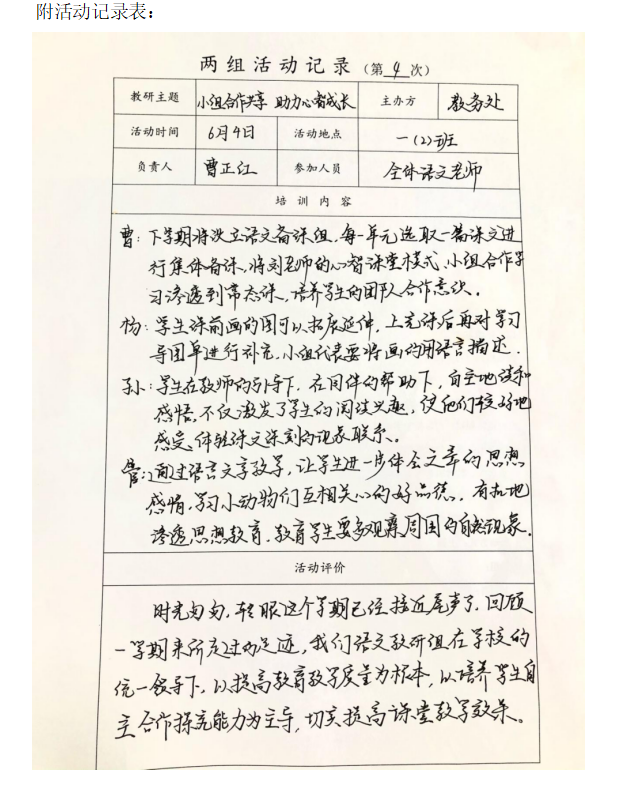 附活动记录表：
两组活动记录（第4次）
教研主题 小组合作共享 助力心智成长 主办方 教务处
活动时间 6月4日 活动地点 一（2）班
负责人 曹正红 参加人员 全体语文老师
培训内容
曹：下学期将设立语文备课组，每一单元选取一篇课文进
行集体备课，将刘老师的心智课堂模式、小组合作学
习渗透到常态课，培养学生的团队合作意识。
杨：学生课前画的图可以拓展延伸，上完课后再对学习
导图单进行补充，小组代表要将画的用语言描述．
孙：学生在教师的引导下，在同伴的帮助下，自主地读和
感悟，不仅激发了学生的阅读兴趣，使他们较好地
感受、体验课文深刻的现象联系。
管：通过语言文字教学，让学生进一步体会文章的思想
感情，学习小动物们互相关心的好品德，有机地
渗透思想教育，教育学生要多观察周围的自然现象．
活动评价
时光匆匆，转眼这个学期已经接近尾声了，回顾
一学期来所走过的足迹，我们语文教研组在学校的
统一领导下，以提高教育教学质量为根本，以培养学生自
主合作探究能力为主导，切实提高课堂教学效果。